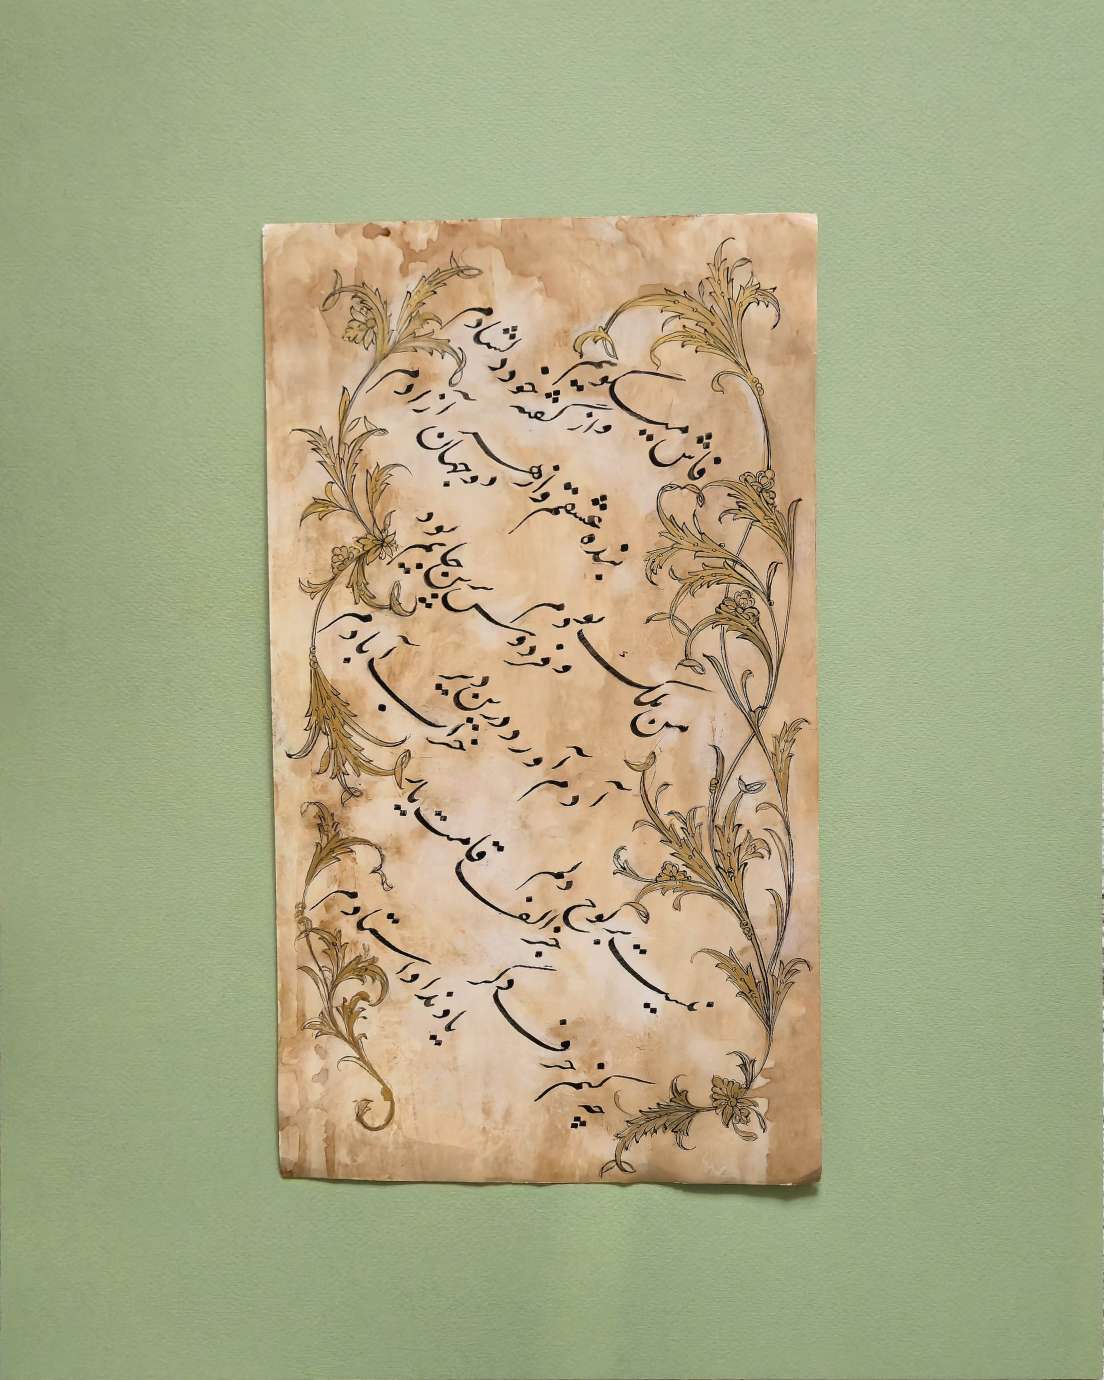 فاش میگویم و از گفته خود دلشادم
بنده عشقم و از هر دو جهان آزادم
من ملک بودم و فردوس برین جایم بود
آدم آورد درین دیر خراب آبادم
نیست بر لوح دلم جز الف قامت یار
چکنم حرف دگر یاد نداد استادم